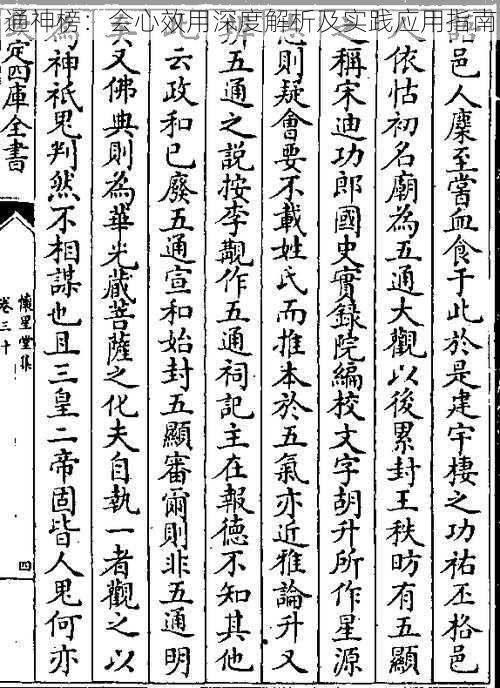 通神榜：会心效用深度解析及实践应用指南
邑人麇至嘗血食于此於是建宇棲之功祐丕格邑
人依怙初名廟為五通大觀以後累封王秩昉有五顯
之稱宋迪功郎國史實錄院編校文字胡升所作星源
則疑會要不載姓氏而推本於五氣亦近雅論升又
五通之説按李觀作五通祠記主在報德不知其他
云政和已廢五通宣和始封五顯審爾則非五通明
又佛典則為華光藏菩薩之化夫自執一者觀之以
為神祇鬼判然不相謀也且三皇二帝固皆人鬼何亦
定四庫全書
懷星堂集
卷三十
四